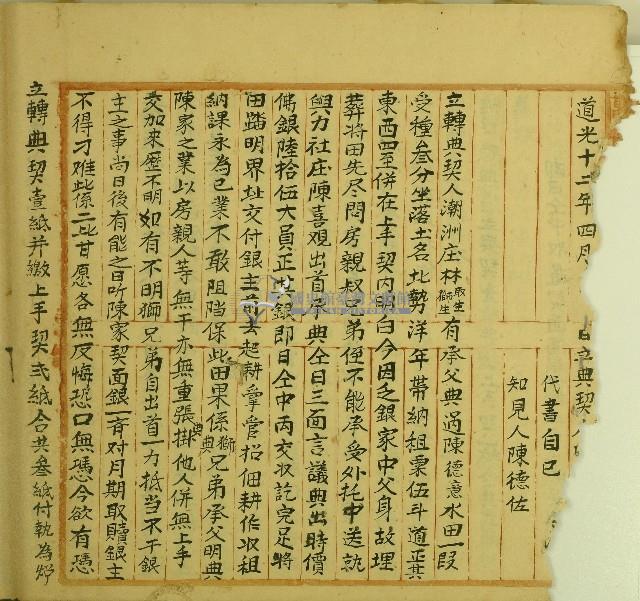 道光十二年四月 日立典契人
代書自己
知見人陳德佐
立轉典契人潮洲庄林敢生獅生有承父典過陳德意水田一段
受種叁分坐落土名北勢洋年帶納租粟伍斗道正其
東西四至併在上手契內明白今因乏銀家中父身故埋
葬将田先尽問房親叔弟侄不能承受外托中送就
興力社庄陳喜观出首承典仝日三面言議典出時價
佛銀陸拾伍大員正其銀即日仝中丙交收訖完足將
田踏明界址交付銀主前去起耕掌管招佃耕作收租
納課永為己業不敢阻擋保此田果係獅兄弟承父明典
陳家之業以房親人等無干亦無重張掛典他人併無上手
交加來歷不明如有不明獅兄弟自出首一力抵当不干銀
主之事尚日後有能之日听陳家契面銀一齐对月期取贖銀主
不得刁难此係二比甘愿各無反悔恐口無憑今欲有憑
立轉典契壹紙并繳上手契弍紙合共叁紙付執為炤